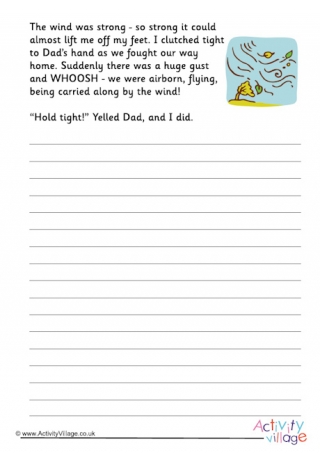 The wind was strong - so strong it could
almost lift me off my feet. I clutched tight
to Dad's hand as we fought our way
home. Suddenly there was a huge gust
and WHOOSH - we were airborn, flying,
being carried along by the wind!
“Hold tight!” Yelled Dad, and I did.
© www.ActivityVillage.co.uk
Activity
village